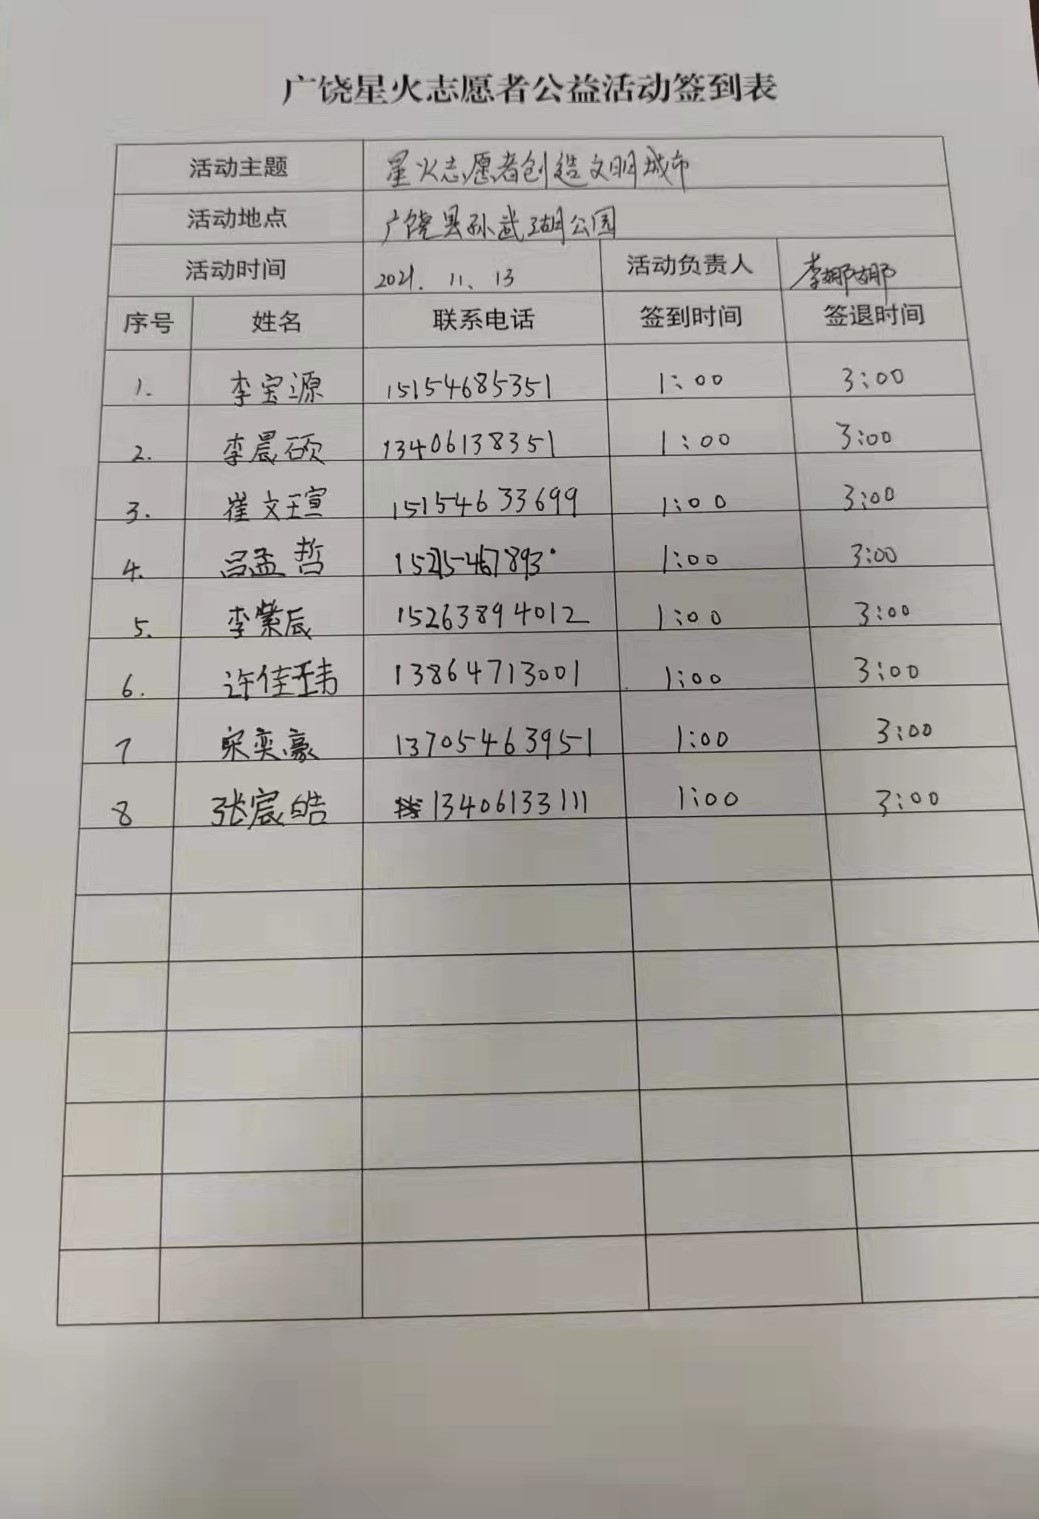 广饶星火志愿者公益活动签到表
活动主题 星火志愿者创造文明城市
活动地点 广饶县孙武湖公园
活动时间 2021. 11、13 活动负责人 李娜娜
序号 姓名 联系电话 签到时间 签退时间
1. 李宝源 15154685351 1:00 3:00
2. 李晨硕 13406138351 1:00 3:00
3. 崔文瑄 15154633699 1:00 3:00
4. 吕孟哲 1:00 3:00
5. 李紫辰 15263894012 1:00 3:00
6. 许佳玮 13864713001 1:00 3:00
7 宋奕豪 13705463951 1:00 3:00
8 张宸皓 13406133111 1:00 3:00